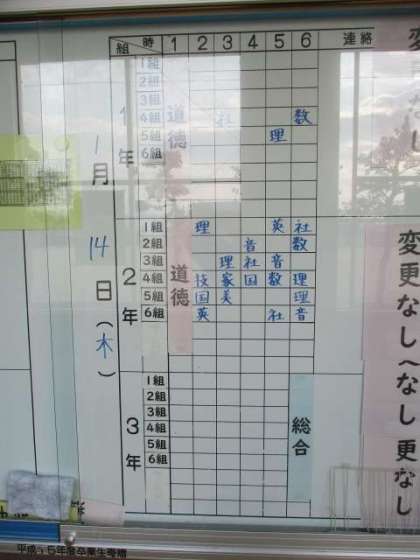 組 時 1 2 3 4 5 6 連絡
1月14日(木)
1年
1組
2組
3組
4組 数
5組 理
6組
道徳
2年
1組 理 英 社
2組 音 数
3組 理 社 音
4組 技 家 国 数 理
5組 国 美 理
6組 英 社 音
道徳
3年
1組
2組
3組
4組
5組
6組
総合
変更なし
変更なし
なし
更なし